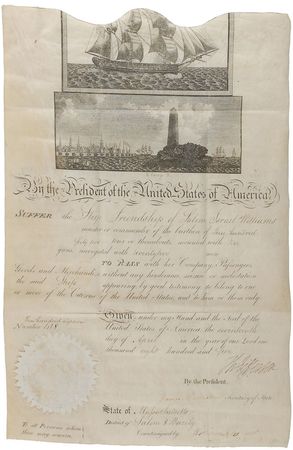 By the President of the United States of America,
SUFFER the Ship Friendship of Salem Israel Williams
master or commander of the burthen of Three hundred
forty two tons or thereabouts mounted with
guns navigated with men
TO PASS with her Company Passengers
Goods and Merchandize without any hinderance seizure or molestation
the said Ship appearing by good testimony to belong to one
or more of the Citizens of the United States; and to him or them only
Given under my Hand and the Seal of the
Number
United States of America the seventeenth
day of April in the year of our Lord one
thousand eight hundred and five
By the President
Secretary of State
State of Massachusetts
District of Salem & Beverly
Countersigned by
To all Persons whom
these may concern.